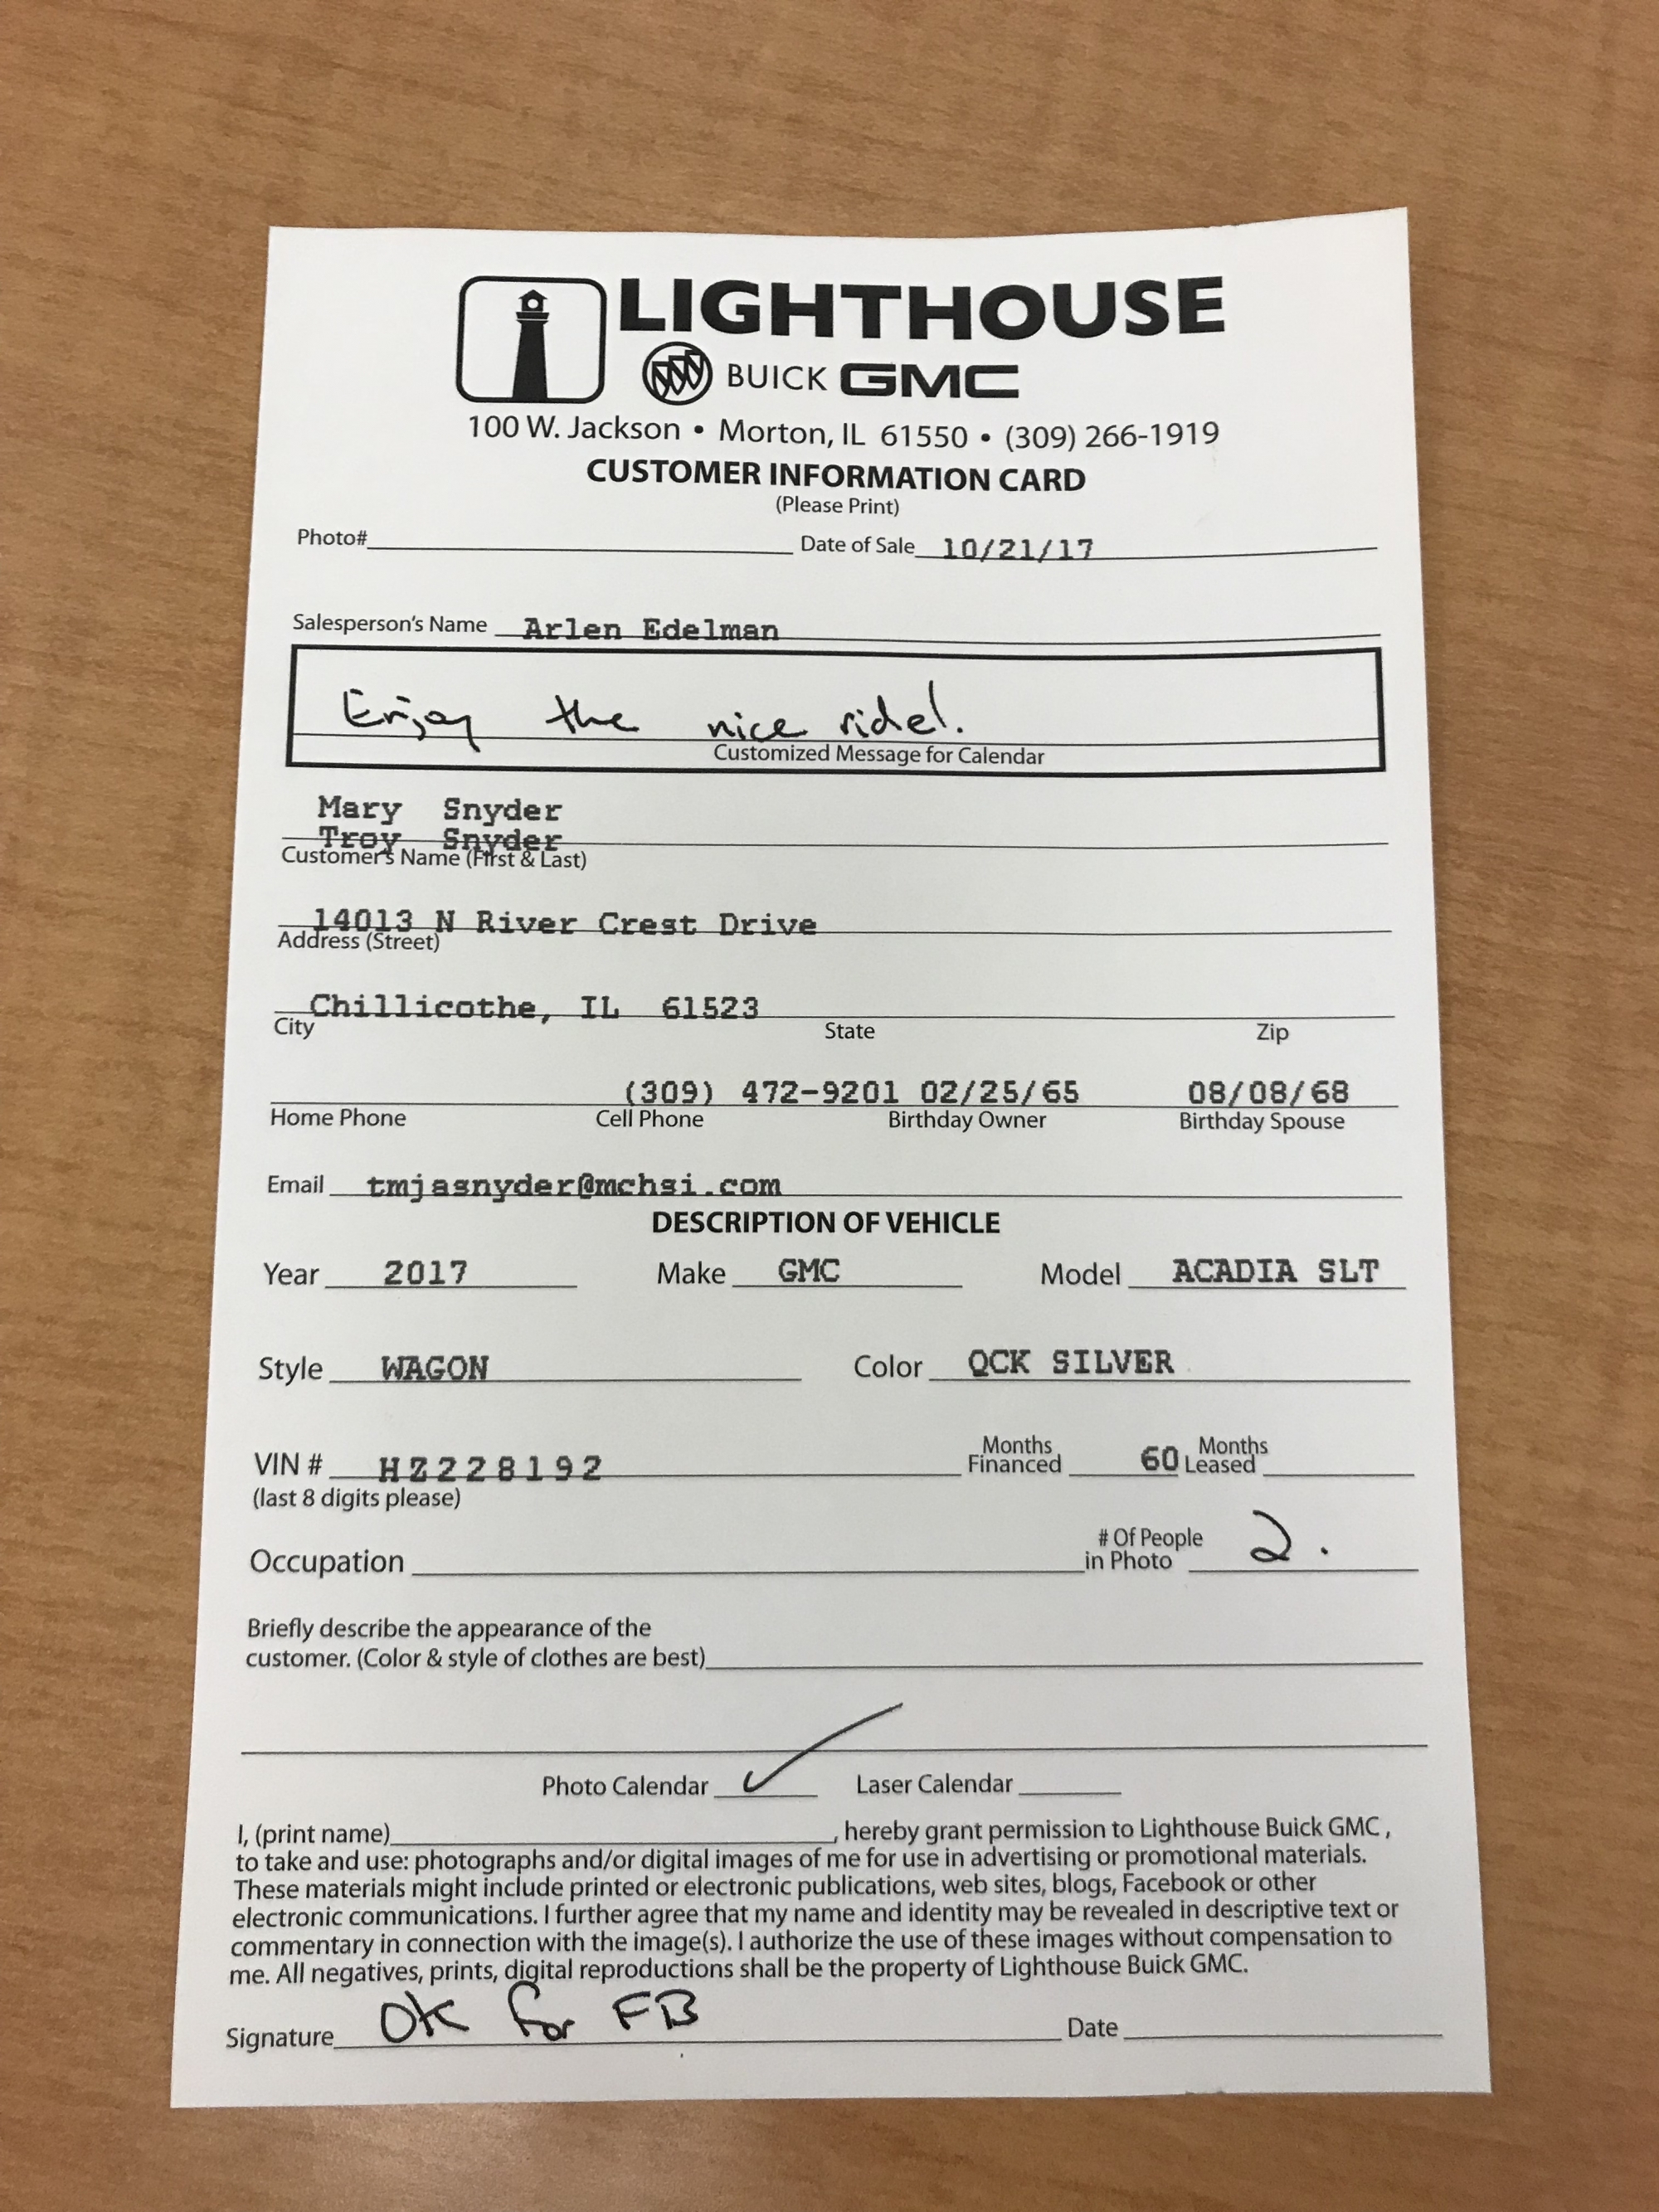 LIGHTHOUSE
BUICK GMC
100 W. Jackson • Morton, IL 61550 • (309) 266-1919
CUSTOMER INFORMATION CARD
(Please Print)
Photo# Date of Sale 10/21/17
Salesperson's Name Arlen Edelman
Enjoy the nice ride!.
Customized Message for Calendar
Mary Snyder
Troy Snyder
Customer's Name (First & Last)
14013 N River Crest Drive
Address (Street)
Chillicothe, IL 61523
City State Zip
(309) 472-9201 02/25/65 08/08/68
Home Phone Cell Phone Birthday Owner Birthday Spouse
Email tmjasnyder@mchsi.com
DESCRIPTION OF VEHICLE
Year 2017 Make GMC Model ACADIA SLT
Style WAGON Color QCK SILVER
VIN # HZ228192 Months Financed 60 Months Leased
(last 8 digits please)
Occupation # Of People in Photo 2.
Briefly describe the appearance of the
customer. (Color & style of clothes are best)
Photo Calendar ✓ Laser Calendar
I, (print name) , hereby grant permission to Lighthouse Buick GMC ,
to take and use: photographs and/or digital images of me for use in advertising or promotional materials.
These materials might include printed or electronic publications, web sites, blogs, Facebook or other
electronic communications. I further agree that my name and identity may be revealed in descriptive text or
commentary in connection with the image(s). I authorize the use of these images without compensation to
me. All negatives, prints, digital reproductions shall be the property of Lighthouse Buick GMC.
Signature OK for FB Date